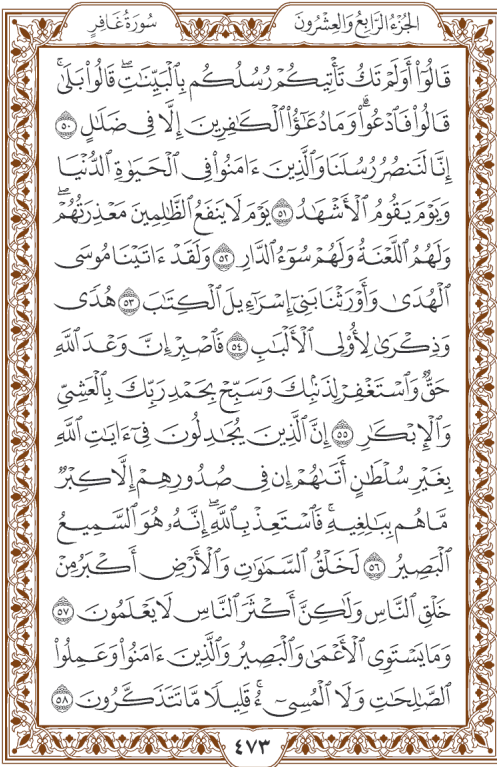 الجزء الرابع والعشرون
سورة غافر
قَالُوٓاْ أَوَلَمۡ تَكُ تَأۡتِيكُمۡ رُسُلُكُم بِٱلۡبَيِّنَٰتِۖ قَالُواْ بَلَىٰۚ
قَالُواْ فَٱدۡعُواْۗ وَمَا دُعَٰٓؤُاْ ٱلۡكَٰفِرِينَ إِلَّا فِي ضَلَٰلٍ ٥٠
إِنَّا لَنَنصُرُ رُسُلَنَا وَٱلَّذِينَ ءَامَنُواْ فِي ٱلۡحَيَوٰةِ ٱلدُّنۡيَا
وَيَوۡمَ يَقُومُ ٱلۡأَشۡهَٰدُ ٥١ يَوۡمَ لَا يَنفَعُ ٱلظَّٰلِمِينَ مَعۡذِرَتُهُمۡۖ
وَلَهُمُ ٱللَّعۡنَةُ وَلَهُمۡ سُوٓءُ ٱلدَّارِ ٥٢ وَلَقَدۡ ءَاتَيۡنَا مُوسَى
ٱلۡهُدَىٰ وَأَوۡرَثۡنَا بَنِيٓ إِسۡرَٰٓءِيلَ ٱلۡكِتَٰبَ ٥٣ هُدٗى
وَذِكۡرَىٰ لِأُوْلِي ٱلۡأَلۡبَٰبِ ٥٤ فَٱصۡبِرۡ إِنَّ وَعۡدَ ٱللَّهِ
حَقّٞ وَٱسۡتَغۡفِرۡ لِذَنۢبِكَ وَسَبِّحۡ بِحَمۡدِ رَبِّكَ بِٱلۡعَشِيِّ
وَٱلۡإِبۡكَٰرِ ٥٥ إِنَّ ٱلَّذِينَ يُجَٰدِلُونَ فِيٓ ءَايَٰتِ ٱللَّهِ
بِغَيۡرِ سُلۡطَٰنٍ أَتَىٰهُمۡ إِن فِي صُدُورِهِمۡ إِلَّا كِبۡرٞ
مَّا هُم بِبَٰلِغِيهِۚ فَٱسۡتَعِذۡ بِٱللَّهِۖ إِنَّهُۥ هُوَ ٱلسَّمِيعُ
ٱلۡبَصِيرُ ٥٦ لَخَلۡقُ ٱلسَّمَٰوَٰتِ وَٱلۡأَرۡضِ أَكۡبَرُ مِنۡ
خَلۡقِ ٱلنَّاسِ وَلَٰكِنَّ أَكۡثَرَ ٱلنَّاسِ لَا يَعۡلَمُونَ ٥٧
وَمَا يَسۡتَوِي ٱلۡأَعۡمَىٰ وَٱلۡبَصِيرُ وَٱلَّذِينَ ءَامَنُواْ وَعَمِلُواْ
ٱلصَّٰلِحَٰتِ وَلَا ٱلۡمُسِيٓءُۚ قَلِيلٗا مَّا تَتَذَكَّرُونَ ٥٨
٤٧٣